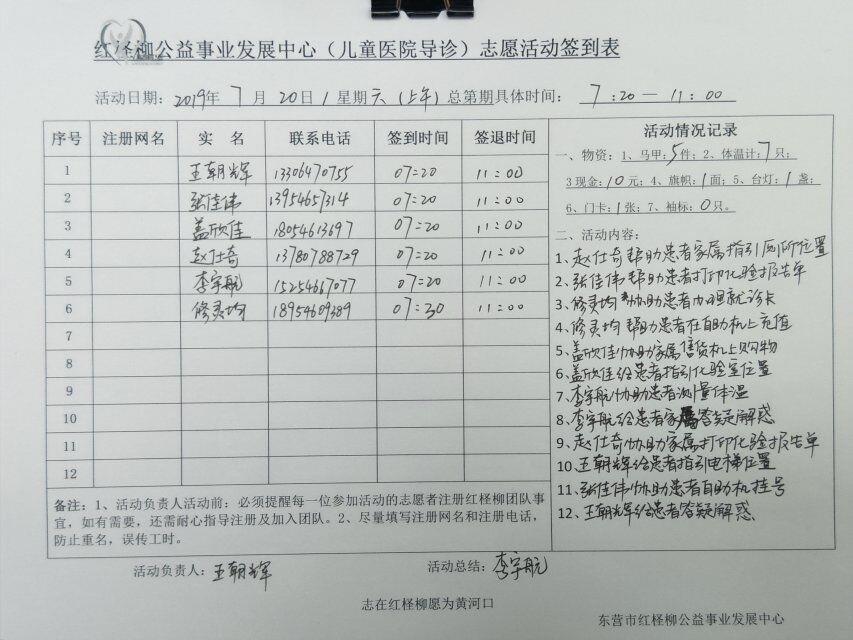 红柽柳公益事业发展中心（儿童医院导诊）志愿活动签到表
活动日期：2019年 7 月 20日/星期六（上午）总第期具体时间： 7:20—11:00
序号 注册网名 实 名 联系电话 签到时间 签退时间
1 王朝辉 13306470755 07:20 11:00
2 张佳伟 13954657314 07:20 11:00
3 盖欣佳 18054613697 07:20 11:00
4 赵仕奇 13780788729 07:20 11:00
5 李宇航 15254667077 07:20 11:00
6 修灵均 18954609389 07:30 11:00
7
8
9
10
11
12
活动情况记录
一、物资：1、马甲：5件；2、体温计：7只；
3现金：10元；4、旗帜：1面；5、台灯：1盏；
6、门卡：1张；7、袖标：0只。
二、活动内容：
1、赵仕奇帮助患者家属指引厕所位置
2、张佳伟帮助患者打印化验报告单
3、修灵均协助患者办理就诊卡
4、修灵均帮助患者在自助机上充值
5、盖欣佳协助家属售货机上购物
6、盖欣佳给患者指引化验室位置
7、李宇航协助患者测量体温
8、李宇航给患者家属答疑解惑
9、赵仕奇协助家属打印化验报告单
10、王朝辉给患者指引电梯位置
11、张佳伟协助患者自助机挂号
12、王朝辉给患者答疑解惑
备注：1、活动负责人活动前：必须提醒每一位参加活动的志愿者注册红柽柳团队事
宜，如有需要，还需耐心指导注册及加入团队。2、尽量填写注册网名和注册电话，
防止重名，误传工时。
活动负责人：王朝辉 活动总结：李宇航
志在红柽柳愿为黄河口
东营市红柽柳公益事业发展中心